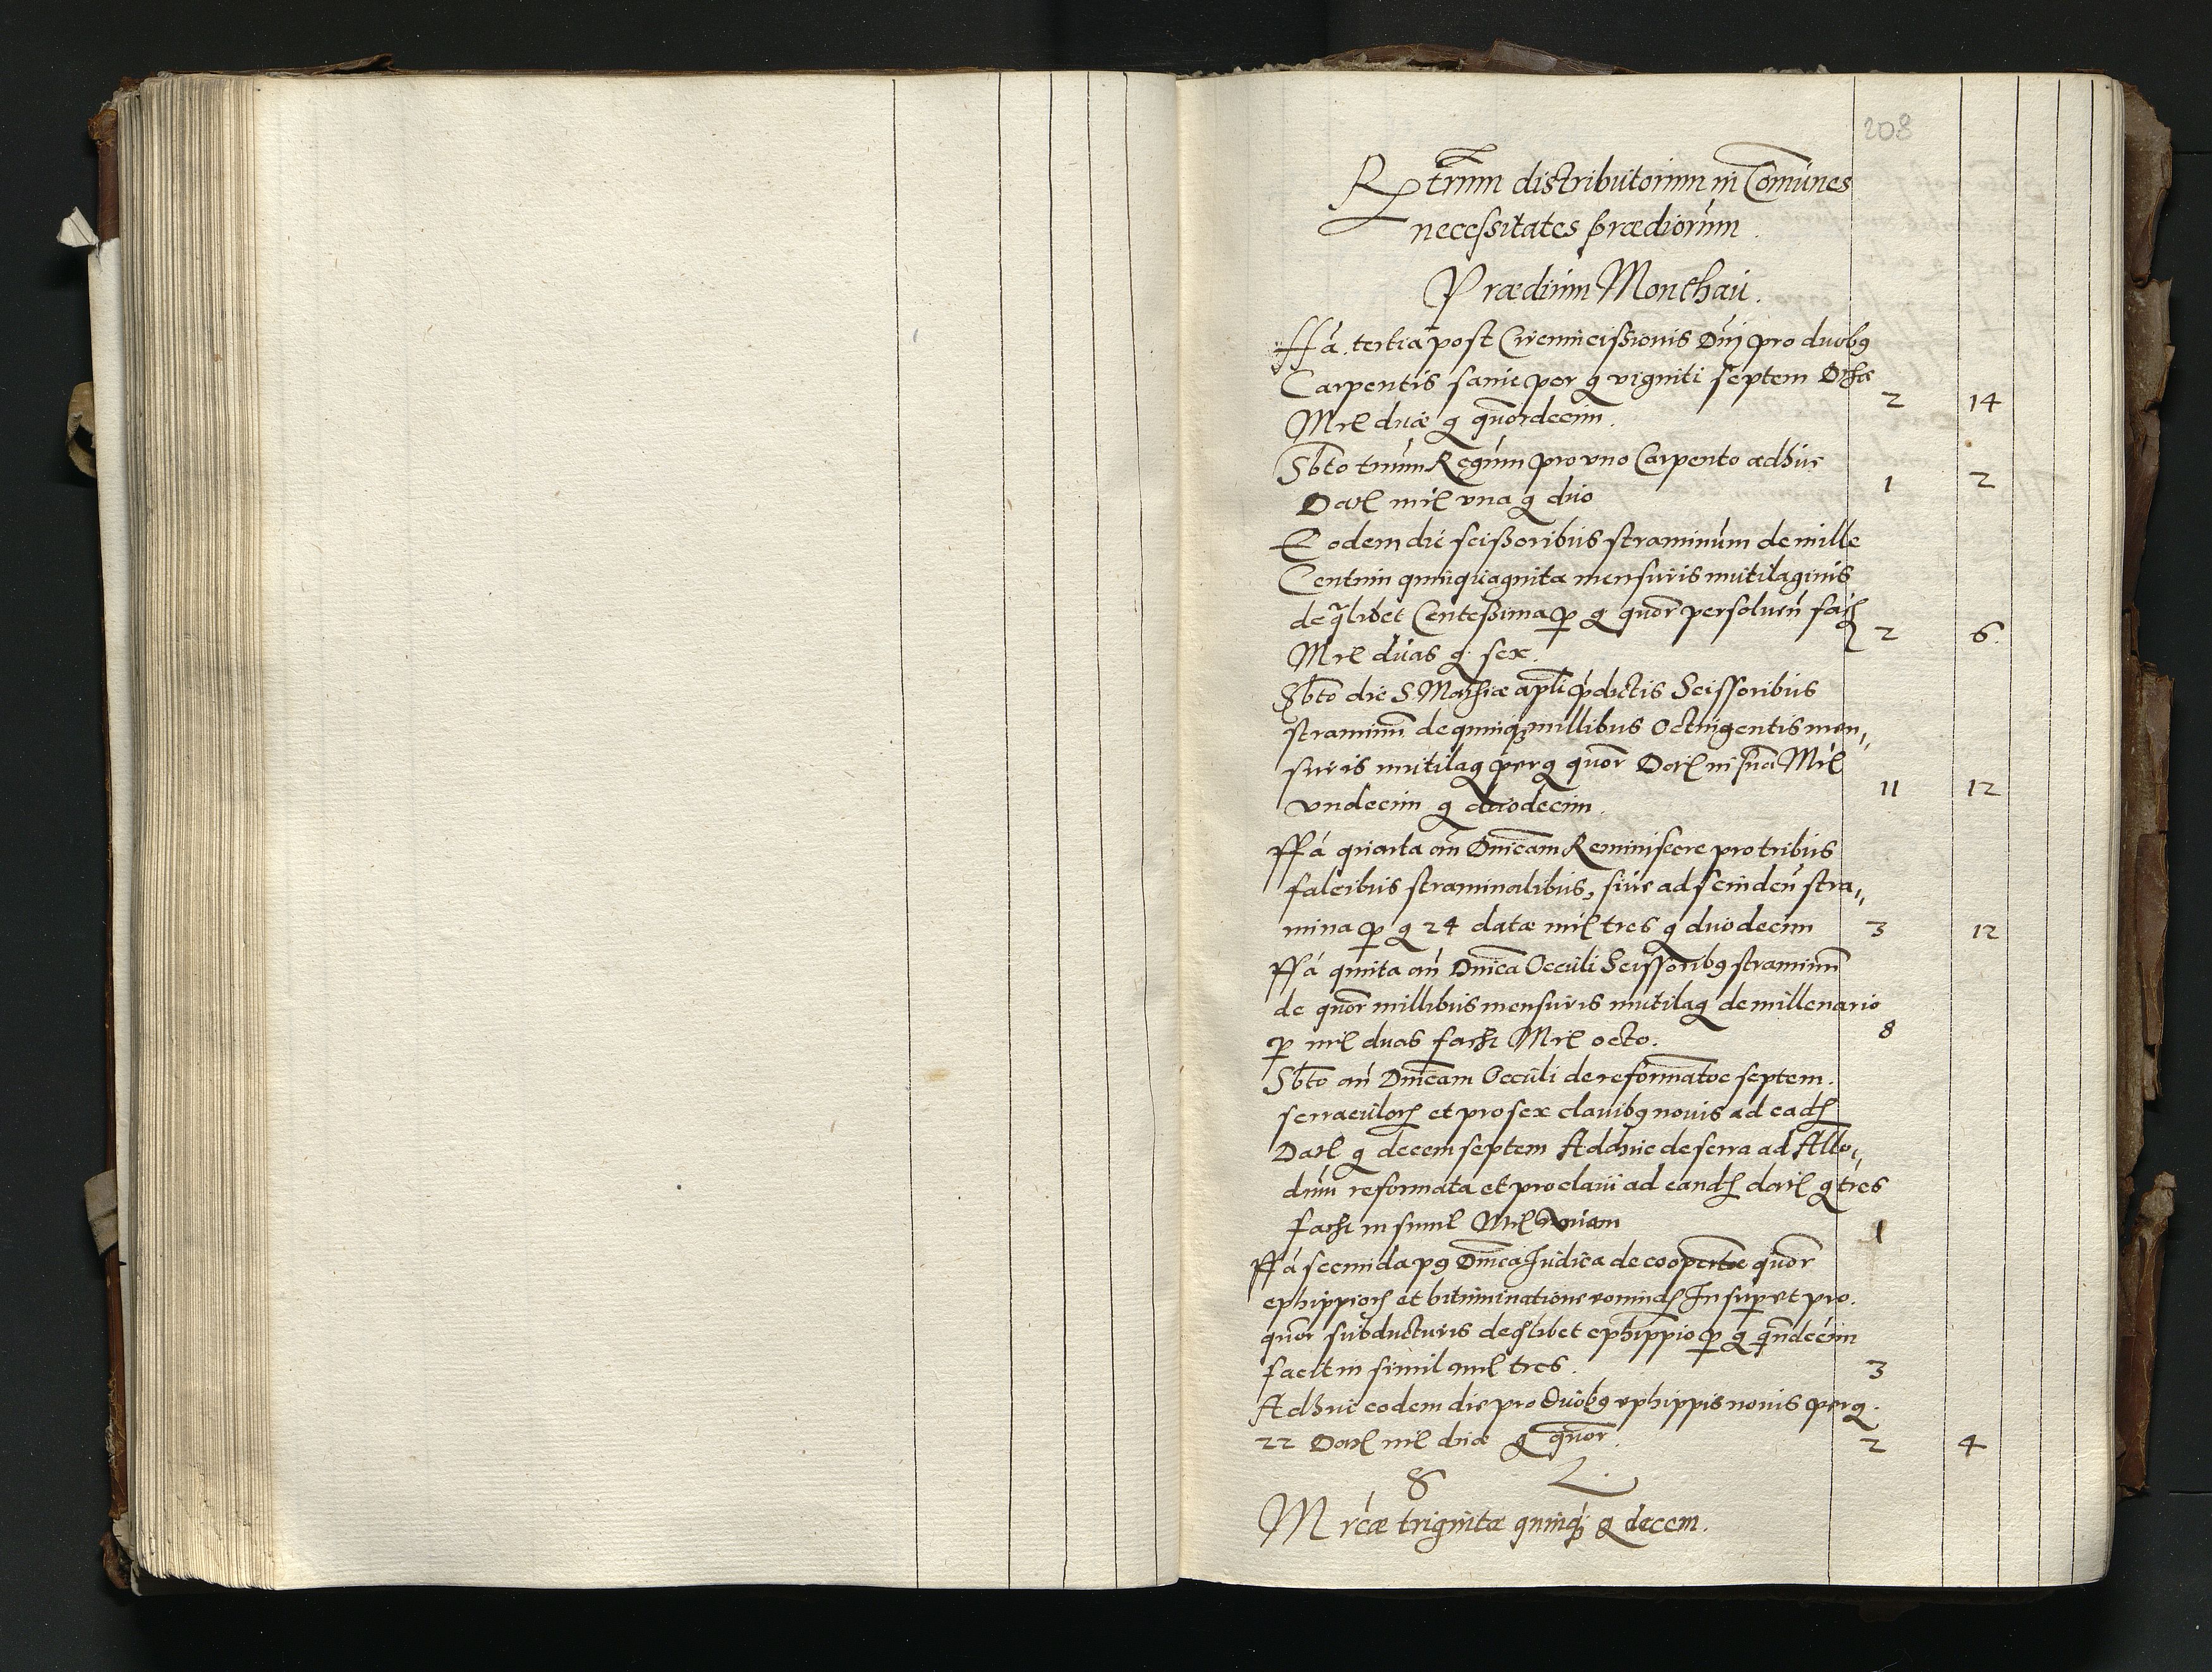 208
Rtrum distributorium in Comunes
necessitates prædiorum.
Prædium Monthaü.
ffâ tertia post Circumcissionis Dnj pro duobg
Carpentis per g viginti septem
Mrl duæ g quordecim. 2 14
Sbto trium Regum pro vno Carpento adhuc
Darl mrl vna g duo 1 2
Eodem die scissoribus straminum de mille
Centum quinquaginta mensuris mutilaginis
de qlibet Centessima p g quor persoluen
Mrl duas g sex. 2 6.
Sbto die S. Mathiæ apli pdictis Scissoribus
straminum de quinq millibus Octingentis men,,
suris mutilag per g quor Darl in suna Mrl
vndecim g duodecim. 11 12
ffâ quarta an Dnicam Reminiscere pro tribus
falcibus straminalibus, siue ad scinden stra,,
mina p g 24 datæ mrl tres g duodecim 3 12
ffâ quinta an Dnica Occuli Scissoribg straminum
de quor millibus mensuris mutilag de millenario
p mrl duas facit Mrl octo. 8
Sbto an Dnicam Occuli de reformatoe septem.
serraculor et pro sex clauibg nouis ad ead
Darl g decem septem Adhuc de serra ad Allo,,
dium reformata et pro claui ad eand darl g tres
facit in simul Mrl vnam 1
ffâ secunda pg Dnica Judica de coopertoe quor
ephippior et bituminatione eorund Insuper et pro.
quor subducturis de qlibet ephippio p g qndecim
facit in simul mrl tres. 3
Adhuc eodem die pro duobg ephippis nouis per g.
22 Darl mrl duæ g quor. 2 4
S L.
Mrcæ triginta quinq g decem.